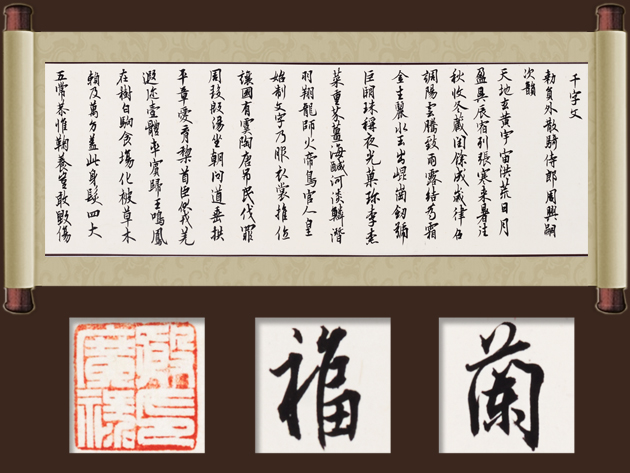 千字文
勅員外散騎侍郎周興嗣
次韻
天地玄黃宇宙洪荒日月
盈昃辰宿列張寒来暑往
秋收冬藏閏餘成歲律召
調陽雲騰致雨露結為霜
金生麗水玉出崐崗劒號
巨闕珠稱夜光菓珎李柰
菜重芥薑海鹹河淡鱗潛
羽翔龍師火帝鳥官人皇
始制文字乃服衣裳推位
讓國有虞陶唐吊民伐罪
周發殷湯坐朝問道垂拱
平章愛育黎首臣伏戎羌
遐迩壹體率賓歸王鳴鳳
在樹白駒食場化被草木
賴及萬方蓋此身髮四大
五常恭惟鞠養豈敢毀傷
蘭
福